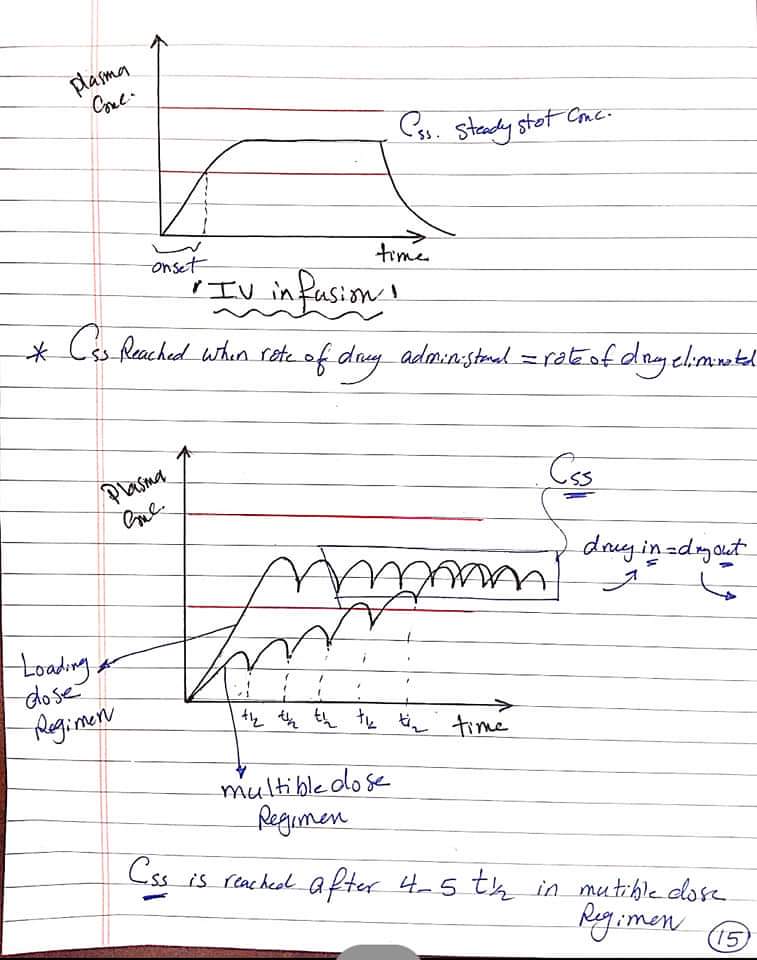 Plasma
Conc.
Css. Steady stat Conc.
time
onset
"IV infusion"
* Css Reached when rate of drug administered = rate of drug eliminated
Plasma
Conc.
Css
drug in = drug out
Loading
dose
Regimen
t½ t½ t½ t½ t½ time
multible dose
Regimen
Css is reached after 4-5 t½ in mutible dose
Regimen
15